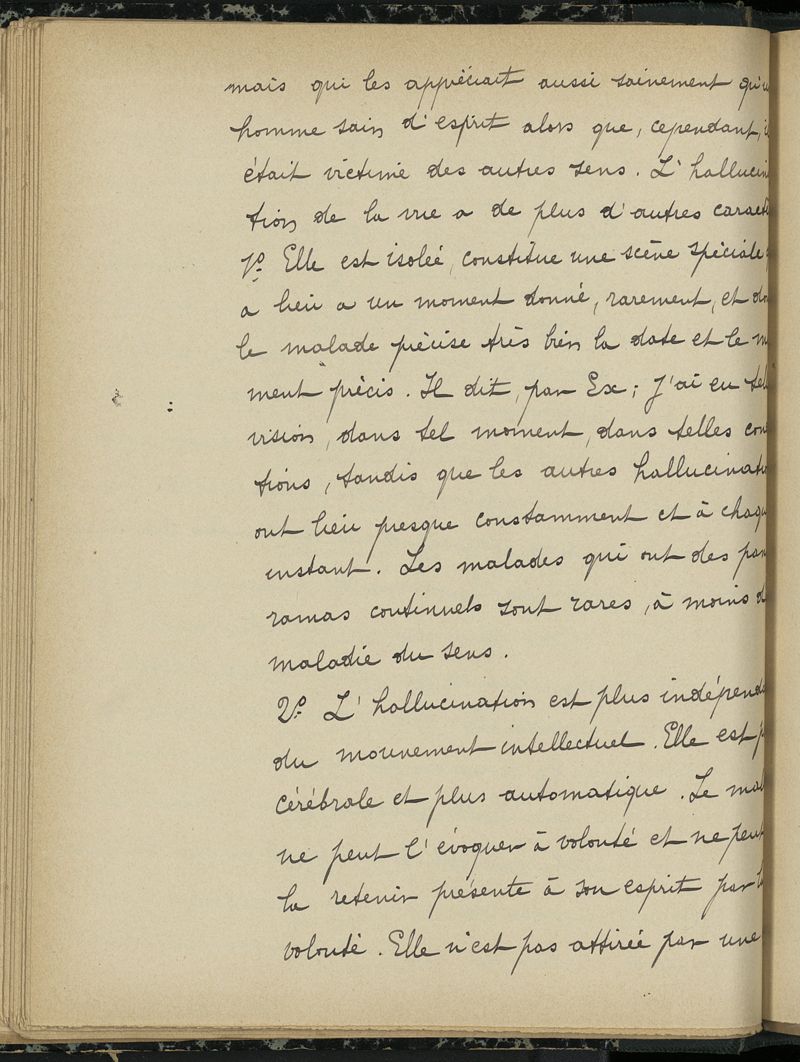 mais qui les appréciait aussi sainement qu'u
homme sain d'esprit alors que, cependant, i
était victime des autres sens. L'hallucin
tion de la vue a de plus d'autres caract
1º. Elle est isolée, constitue une scène spéciale
a lieu a un moment donné, rarement, et do
le malade précise très bien la date et le m
ment précis. Il dit, par Ex; j'ai eu tel
vision, dans tel moment, dans telles con
tions, tandis que les autres hallucinati
ont lieu presque constamment et à chaqu
instant. Les malades qui ont des pan
ramas continuels sont rares, à moins d
maladie du sens.
2º. L'hallucination est plus indépend
du mouvement intellectuel. Elle est p
cérébrale et plus automatique. Le mal
ne peut l'évoquer à volonté et ne peut
la retenir présente à son esprit par l
volonté. Elle n'est pas attirée par une